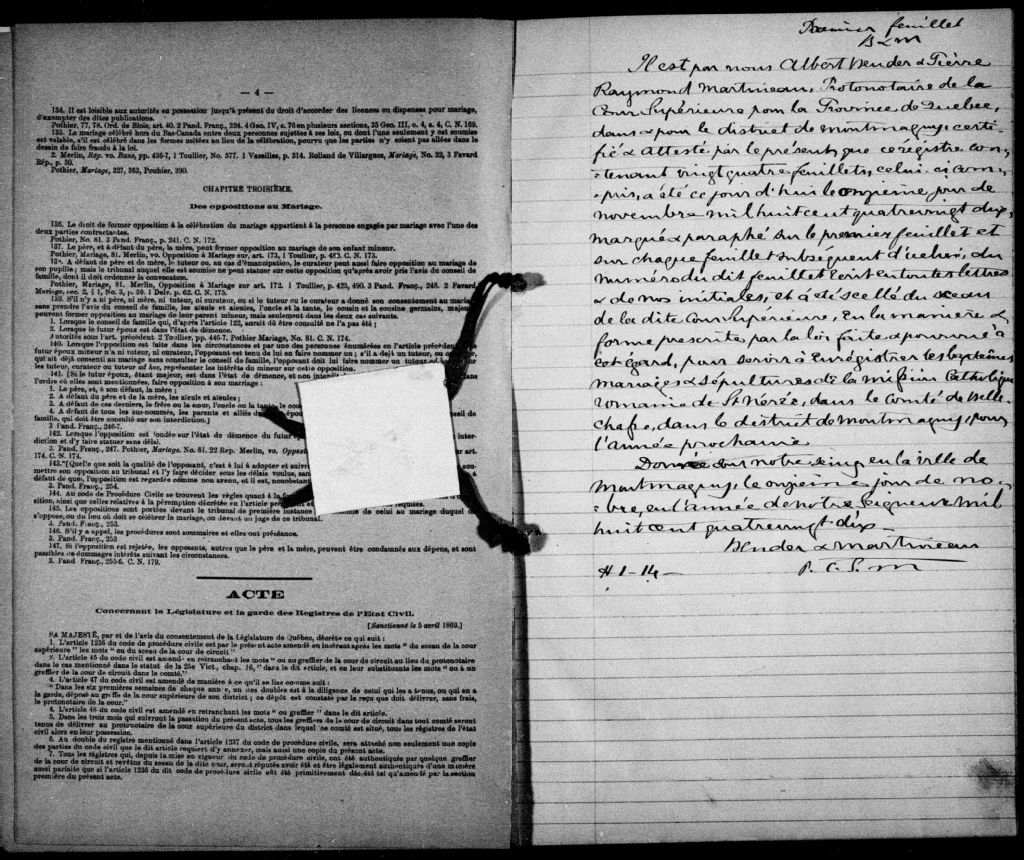 — 4 —
134. Il est loisible aux autorités en possession jusqu'à présent du droit d'accorder des licences ou dispenses pour mariage,
d'exempter des dites publications.
Pothier, 77, 78. Ord. de Blois, art. 40. 2 Pand. Franç., 324. 4 Geo. IV, c. 76 en plusieurs sections, 35 Geo. III, c. 4, s. 4, C. N. 169.
135. Le mariage célébré hors du Bas-Canada entre deux personnes sujettes à ses lois, ou dont l'une seulement y est soumise
est valable, s'il est célébré dans les formes usitées au lieu de la célébration, pourvu que les parties n'y soient pas allées dans le
dessein de faire fraude à la loi.
2. Merlin, Rép. vo. Bans, pp. 436-7, 1 Toullier, No. 577. 1 Vazeilles, p. 314. Rolland de Villargues, Mariage, No. 22, 3 Favard
Rép., p. 30.
Pothier, Mariage, 327, 363, Pouhier, 390.
CHAPITRE TROISIÈME.
Des oppositions au Mariage.
136. Le droit de former opposition à la célébration du mariage appartient à la personne engagée par mariage avec l'une des
deux parties contractantes.
Pothier, No. 81. 3 Pand. Franç., p. 241. C. N. 172.
137. Le père, et à défaut du père, la mère, peut former opposition au mariage de son enfant mineur.
Pothier, Mariage, 81. Merlin, vo. Opposition à Mariage sur, art. 173, 1 Toullier, p. 489. C. N. 173.
138. A défaut de père et de mère, le tuteur ou, au cas d'émancipation, le curateur peut aussi faire opposition au mariage de
son pupille; mais le tribunal auquel elle est soumise ne peut statuer sur cette opposition qu'après avoir pris l'avis du conseil de
famille, dont il doit ordonner la convocation.
Pothier, Mariage, 81. Merlin, Opposition à Mariage sur art. 172. 1 Toullier, p. 425, 490. 3 Pand. Franç., 248. 2 Favard
Mariage, sec. 2, § 1, No. 3, p. 59. 1 Delv. p. 62. C. N. 175.
139. S'il n'y a ni père, ni mère, ni tuteur, ni curateur, ou si le tuteur ou le curateur a donné son consentement au mariage
sans prendre l'avis du conseil de famille, les aïeuls et aïeules, l'oncle et la tante, le cousin et la cousine germains, majeurs
peuvent former opposition au mariage de leur parent mineur, mais seulement dans les deux cas suivants.
1. Lorsque le conseil de famille qui, d'après l'article 122, aurait dû être consulté ne l'a pas été;
2. Lorsque le futur époux est dans l'état de démence.
Autorités sous l'art. précédent. 2 Toullier, pp. 446-7. Pothier Mariage, No. 81. C. N. 174.
140. Lorsque l'opposition est faite dans les circonstances et par une des personnes énumérées en l'article précédent
futur époux mineur n'a ni tuteur, ni curateur, l'opposant est tenu de lui en faire nommer un; s'il a déjà un tuteur, ou
qui ait déjà consenti au mariage sans consulter le conseil de famille, l'opposant doit lui faire nommer un tuteur
les tuteur, curateur ou tuteur ad hoc, représenter les intérêts du mineur sur cette opposition.
141. [Si le futur époux, étant majeur, est dans l'état de démence, et non
l'ordre où elles sont mentionnées, faire opposition à son mariage:
1. Le père, et, à son défaut, la mère;
2. A défaut du père et de la mère, les aïeuls et aïeules;
3. A défaut de ces derniers, le frère ou la sœur, l'oncle ou la tante, le
4. A défaut de tous les sus-nommés, les parents et alliés du
famille, qui doit être consulté sur son interdiction.]
3 Pand. Franç., 246-7.
142. Lorsque l'opposition est fondée sur l'état de démence du futur
diction et d'y faire statuer sans délai.
3. Pand. Franç., 247. Pothier, Mariage, No. 81. 22 Rep. Merlin, vo.
174. C. N. 174.
143. [Quelle que soit la qualité de l'opposant, c'est à lui à adopter et suivre
mettre son opposition au tribunal et l'y faire décider sous les délais voulus,
défaut de quoi, l'opposition est regardée comme non avenue, et il est, nonobstant
3. Pand. Franç., 254.
144. Au code de Procédure Civile se trouvent les règles quant à la
sition, ainsi que celles relatives à la péremption décrétée en l'article
145. Les oppositions sont portées devant le tribunal de première instance du domicile de celui au mariage duquel on
s'oppose, ou du lieu où doit se célébrer le mariage, ou devant un juge de ce tribunal.
3. Pand. Franç., 253.
146. S'il y a appel, les procédures sont sommaires et elles ont préséance.
3. Pand. Franç., 253
147. Si l'opposition est rejetée, les opposants, autres que le père et la mère, peuvent être condamnés aux dépens, et sont
passibles de dommages intérêts suivant les circonstances.
3. Pand Franç., 255-6. C. N. 179.
ACTE
Concernant la Législature et la garde des Registres de l'Etat Civil.
[Sanctionné le 5 avril 1869.]
SA MAJESTÉ, par et de l'avis du consentement de la Législature de Québec, décrète ce qui suit:
1. L'article 1236 du code de procédure civile est par le présent acte amendé en insérant après les mots " du sceau de la cour
supérieure " les mots " ou du sceau de la cour de circuit "
2. L'article 45 du code civil est amendé en retranchant les mots " ou au greffier de la cour de circuit au lieu du protonotaire
dans le cas mentionné dans le statut de la 25e Vict., chap. 16, " dans le dit article, et en leur substituant les mots " ou à un
greffier de la cour de circuit dans le comté."
4. L'article 47 du code civil est amendé de manière à ce qu'il se lise comme suit:
" Dans les six premières semaines de chaque année, un des doubles est à la diligence de celui qui les a tenus, ou qui en a
la garde, déposé au greffe de la cour supérieure de son district; ce dépôt est constaté par le reçu que doit délivrer, sans frais,
le protonotaire de la cour."
4. L'article 48 du code civil est amendé en retranchant les mots " ou greffier " dans le dit article.
5. Dans les trois mois qui suivront la passation du présent acte, tous les greffiers de la cour de circuit dans tout comté seront
tenus de délivrer au protonotaire de la cour supérieure du district dans lequel ce comté est situé, tous les registres de l'état
civil alors en leur possession.
6. Au double du registre mentionné dans l'article 1237 du code de procédure civile, sera attaché non seulement une copie
des parties du code civil que le dit article requiert d'y annexer, mais aussi une copie du présent acte.
7. Tous les registres qui, depuis la mise en vigueur du code de procédure civile, ont été authentiqués par quelque greffier
de la cour de circuit et revêtus du sceau de la dite cour, seront réputés avoir été et être légalement authentiqués d'une manière
aussi parfaite que si l'article 1236 du dit code de procédure civile eût été primitirement décrété tel qu'amendé par la section
première du présent acte.
Premier feuillet
B & M
Il est par nous Albert Bender & Pierre
Raymond Martineau, Protonotaire de la
Cour Supérieure pour la Province de Quebec,
dans & pour le district de Montmagny, certi-
fié & attesté par le présent, que ce régistre con-
tenant vingt quatre feuillets, celui-ci com-
pris, a été ce jour d'hui le onzieme jour de
novembre mil huit cent quatrevingt dix,
marqué & paraphé sur le premier feuillet et
sur chaque feuillet subséquent d'icelui, du
numéro du dit feuillet écrit en toutes lettres
& de nos initiales, et a été scellé du sceau
de la dite Cour Supérieure, en la manière &
forme prescrites par la loi faite & pourvue à
cet égard, pour servir à Enrégistrer les baptêmes
mariages & sépultures de la mission Catholique
romaine de St Nérée, dans le Comté de Belle-
chasse, dans le district de Montmagny, pour
l'année prochaine
Donnée sous notre seing en la ville de
Montmagny, le onzieme jour de no-
bre, en l'année de notre Seigneur mil
huit cent quatrevingt dix—
Bender & Martineau
P. C. S. M
# 1-14—